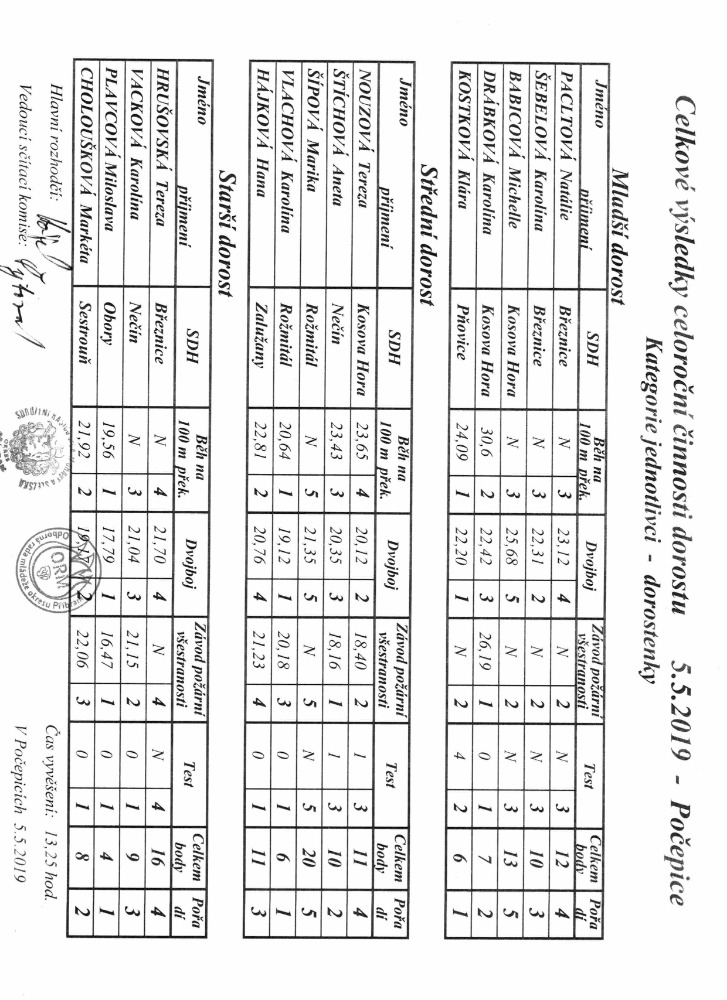 Celkové výsledky celoroční činnosti dorostu 5.5.2019 - Počepice
Kategorie jednotlivci - dorostenky
Mladší dorost
Jméno příjmení SDH Běh na 100 m přek. Dvojboj Závod požární všestranosti Test Celkem body Pořa dí
PACLTOVÁ Natálie Březnice N 3 23,12 4 N 2 N 3 12 4
ŠEBELOVÁ Karolína Březnice N 3 22,31 2 N 2 N 3 10 3
BABICOVÁ Michelle Kosova Hora N 3 25,68 5 N 2 N 3 13 5
DRÁBKOVÁ Karolína Kosova Hora 30,6 2 22,42 3 26,19 1 0 1 7 2
KOSTKOVÁ Klára Pňovice 24,09 1 22,20 1 N 2 4 2 6 1
Střední dorost
Jméno příjmení SDH Běh na 100 m přek. Dvojboj Závod požární všestranosti Test Celkem body Pořa dí
NOUZOVÁ Tereza Kosova Hora 23,65 4 20,12 2 18,40 2 1 3 11 4
ŠTÍCHOVÁ Aneta Nečín 23,43 3 20,35 3 18,16 1 1 3 10 2
ŠÍPOVÁ Marika Rožmitál N 5 21,35 5 N 5 N 5 20 5
VLACHOVÁ Karolína Rožmitál 20,64 1 19,12 1 20,18 3 0 1 6 1
HÁJKOVÁ Hana Zalužany 22,81 2 20,76 4 21,23 4 0 1 11 3
Starší dorost
Jméno příjmení SDH Běh na 100 m přek. Dvojboj Závod požární všestranosti Test Celkem body Pořa dí
HRUŠOVSKÁ Tereza Březnice N 4 21,70 4 N 4 N 4 16 4
VACKOVÁ Karolína Nečín N 3 21,04 3 21,15 2 0 1 9 3
PLAVCOVÁ Miloslava Obory 19,56 1 17,79 1 16,47 1 0 1 4 1
CHOLOUŠKOVÁ Markéta Sestrouň 21,92 2 19,47 2 22,06 3 0 1 8 2
Hlavní rozhodčí: Čas vyvěšení: 13,25 hod.
Vedoucí sčítací komise: V Počepicích 5.5.2019
Odborná rada mládeže okresu Příbram
ORM